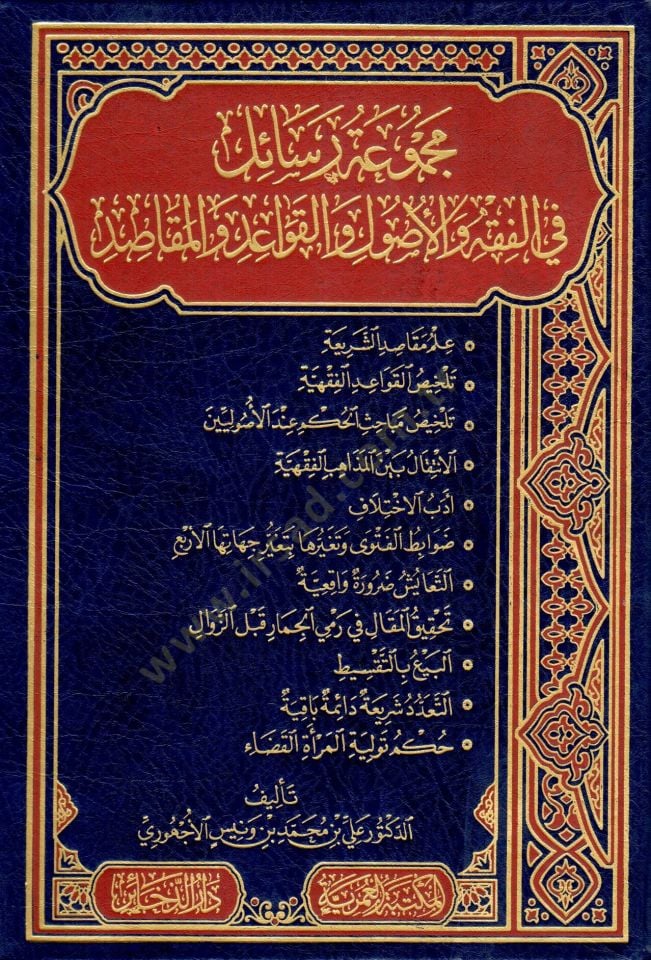 مجموعة رسائل
في الفقه والأصول والقواعد والمقاصد
• علم مقاصد الشريعة
• تلخيص القواعد الفقهية
• تلخيص مباحث الحكم عند الأصوليين
• الانتقال بين المذاهب الفقهية
• أدب الاختلاف
• ضوابط الفتوى وتغيرها بتغير جهاتها الأربع
• التعايش ضرورة واقعية
• تحقيق المقال في رمي الجمار قبل الزوال
• البيع بالتقسيط
• التعدد شريعة دائمة باقية
• حكم تولية المرأة القضاء
تأليف
الدكتور علي بن محمد بن ونيس الأجهوري
المكتبة العمرية
دار الذخائر